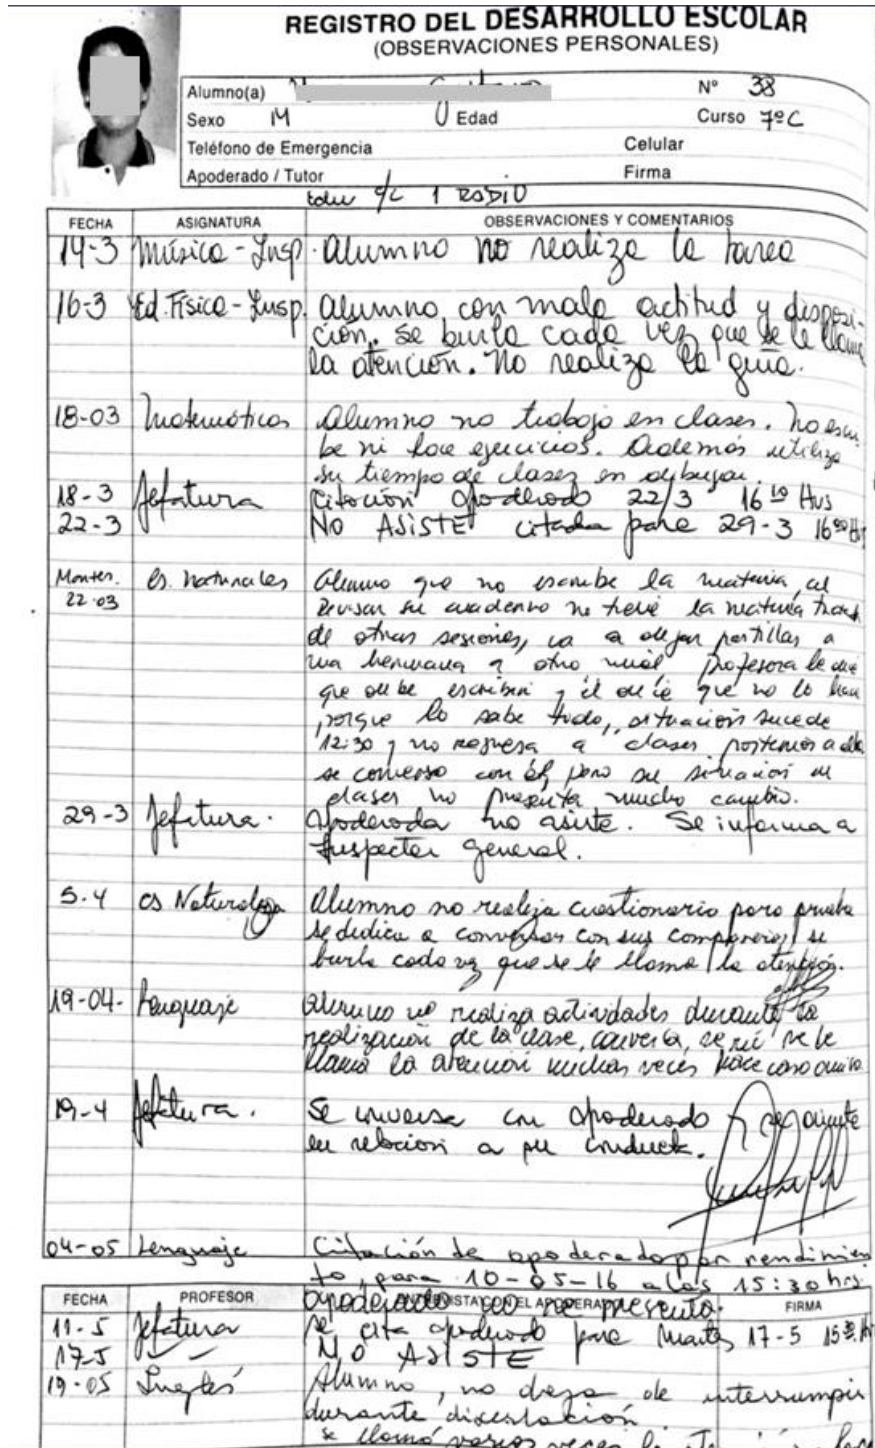 REGISTRO DEL DESARROLLO ESCOLAR
(OBSERVACIONES PERSONALES)
Alumno(a) Nº 38
Sexo M Edad Curso 7º C
Teléfono de Emergencia Celular
Apoderado / Tutor Firma
c/c 1
FECHA ASIGNATURA OBSERVACIONES Y COMENTARIOS
14-3 Música - Insp. Alumno no realiza la tarea
16-3 Ed. Física - Insp. Alumno con mala actitud y disposi-
ción. Se burla cada vez que se le llama
la atención. No realiza la guía.
18-03 Matemáticas Alumno no trabaja en clases. No escri-
be ni hace ejercicios. Además utiliza
su tiempo de clases en dibujar.
18-3 Jefatura Citación apoderado 22/3 16 Hrs
22-3 NO ASISTE citada para 29-3 16 Hr
Martes. Cs. Naturales Alumno que no escribe la materia, al
22-03 revisar su cuaderno no tiene la materia
de otras sesiones, va a dejar pastillas a
una hermana a otro profesora le dice
que debe escribir y él dice que no lo hace
porque lo sabe todo, situación sucede
12:30 y no regresa a clases, posterior a ello
se converso con él, pero su situación en
clases no presenta mucho cambio.
29-3 Jefatura. Apoderada no asiste. Se informa a
Inspector General.
5-4 Cs Naturaleza Alumno no realiza cuestionario para prueba
se dedica a conversar con sus compañeros, se
burla cada vez que se le llama la atención.
19-04- Lenguaje Alumno no realiza actividades durante la
realización de la clase, conversa, se ríe, se le
llama la atención muchas veces hace caso omiso.
19-4 Jefatura. Se conversa con apoderado
en relación a su conducta.
04-05 Lenguaje Citación de apoderado por rendimien
to, para 10-05-16 a las 15:30 hrs.
FECHA PROFESOR ENTREVISTA CON EL APODERADO FIRMA
apoderado no se presenta.
11-5 Jefatura Se cita apoderado para Martes 17-5 15:30 Hr
17-5 NO ASISTE
19-05 Inglés Alumno, no deja de interrumpir
durante disertación
se llamó varias veces la